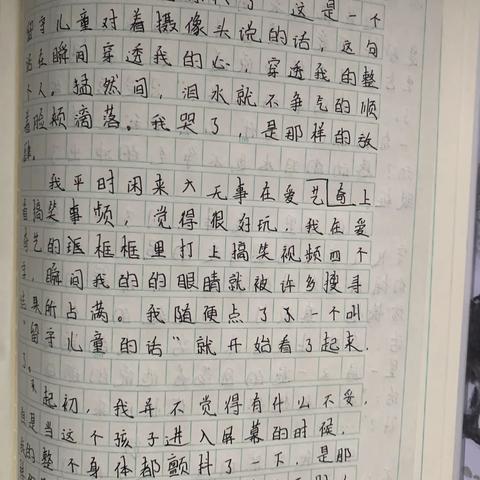 这是一个
留守儿童对着摄像头说的话，这句
话在瞬间穿透我的心，穿透我的整
个人。猛然间，泪水就不争气的顺
着脸颊滴落。我哭了，是那样的放
肆。
我平时闲来六无事在爱艺奇上
看搞笑事频，觉得很好玩，我在爱
奇艺的框框里打上搞笑视频四个
字，瞬间我的的眼睛就被许多搜寻
结果所占满。我随硬点了一个叫
“留守儿童的话”就开始看了起来.
了。
起初，我并不觉得有什么不妥，
但是当这个孩子进入屏幕的时候，
我的整个身体都颤抖了一下，是那